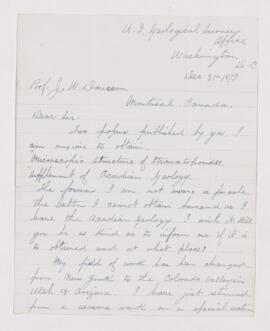 U.S. Geological Survey
Office
Washington
D.C.
Dec 31st 1879.
Prof. J. W. Dawson
Montreal. Canada.
Dear Sir:
Two papers published by you, I
am anxious to obtain.
Microscopic structure of Stromatoporidae.
Supplement of Acadian Geology.
The former I am not sure is possible
the latter I cannot obtain
have the Acadian Geology I wish it. Will
you be so kind as to inform me if it is
to obtained and at what place?
My field of work has been changed
from New York to the Colorado Valley in
Utah & Arizona. I have just returned
from a seasons work on a special section